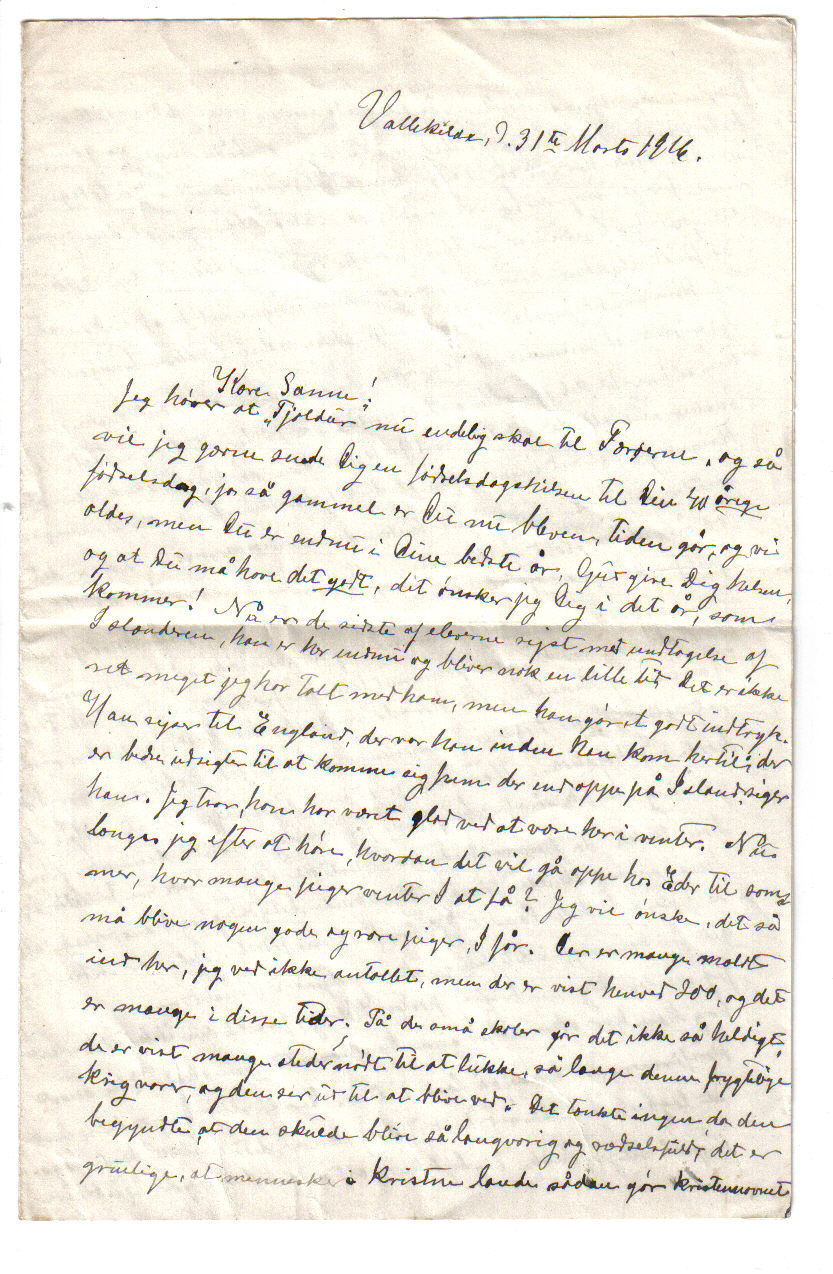 Vallekilde, d. 31te Marts 1916.
Kære Sanne!
Jeg hører at „Tjaldur“ nu endelig skal til Færøerne, og så
vil jeg gærne sende Dig en fødselsdagshilsen til Din 40 årige
fødselsdag, ja så gammel er Du nu bleven, tiden går, og vi
ældes, men Du er endnu i Dine bedste år, Gud give Dig helsen,
og at Du må have det godt, det ønsker jeg Dig i det år, som
kommer! Nu er de sidste af eleverne rejst med undtagelse af
Islænderen, han er her endnu og bliver nok en lille tid. Det er ikke
ret meget jeg har talt med ham, men han gør et godt indtryk.
Han rejser til England, der var han inden han kom hertil, der
er bedre udsigter til at komme sig frem der end oppe på Island, siger
han. Jeg tror, han har været glad ved at være her i vinter. Nu
længes jeg efter at høre, hvordan det vil gå oppe hos Eder til som-
mer, hvor mange piger venter I at få? Jeg vil ønske, det så
må blive nogen gode og rare piger, I får. Der er mange meldt
ind her, jeg ved ikke antallet, men der er vist henved 200, og det
er mange i disse tider. På de små skoler går det ikke så heldigt,
de er vist mange steder nødt til at lukke, så længe denne frygtelige
krig varer, og den ser ud til at blive ved. Det tænkte ingen da den
begyndte, at den skulde blive så langvarig og rædselsfuld, det er
gruelige, at mennesker i kristne lande sådan gør kristennavnet